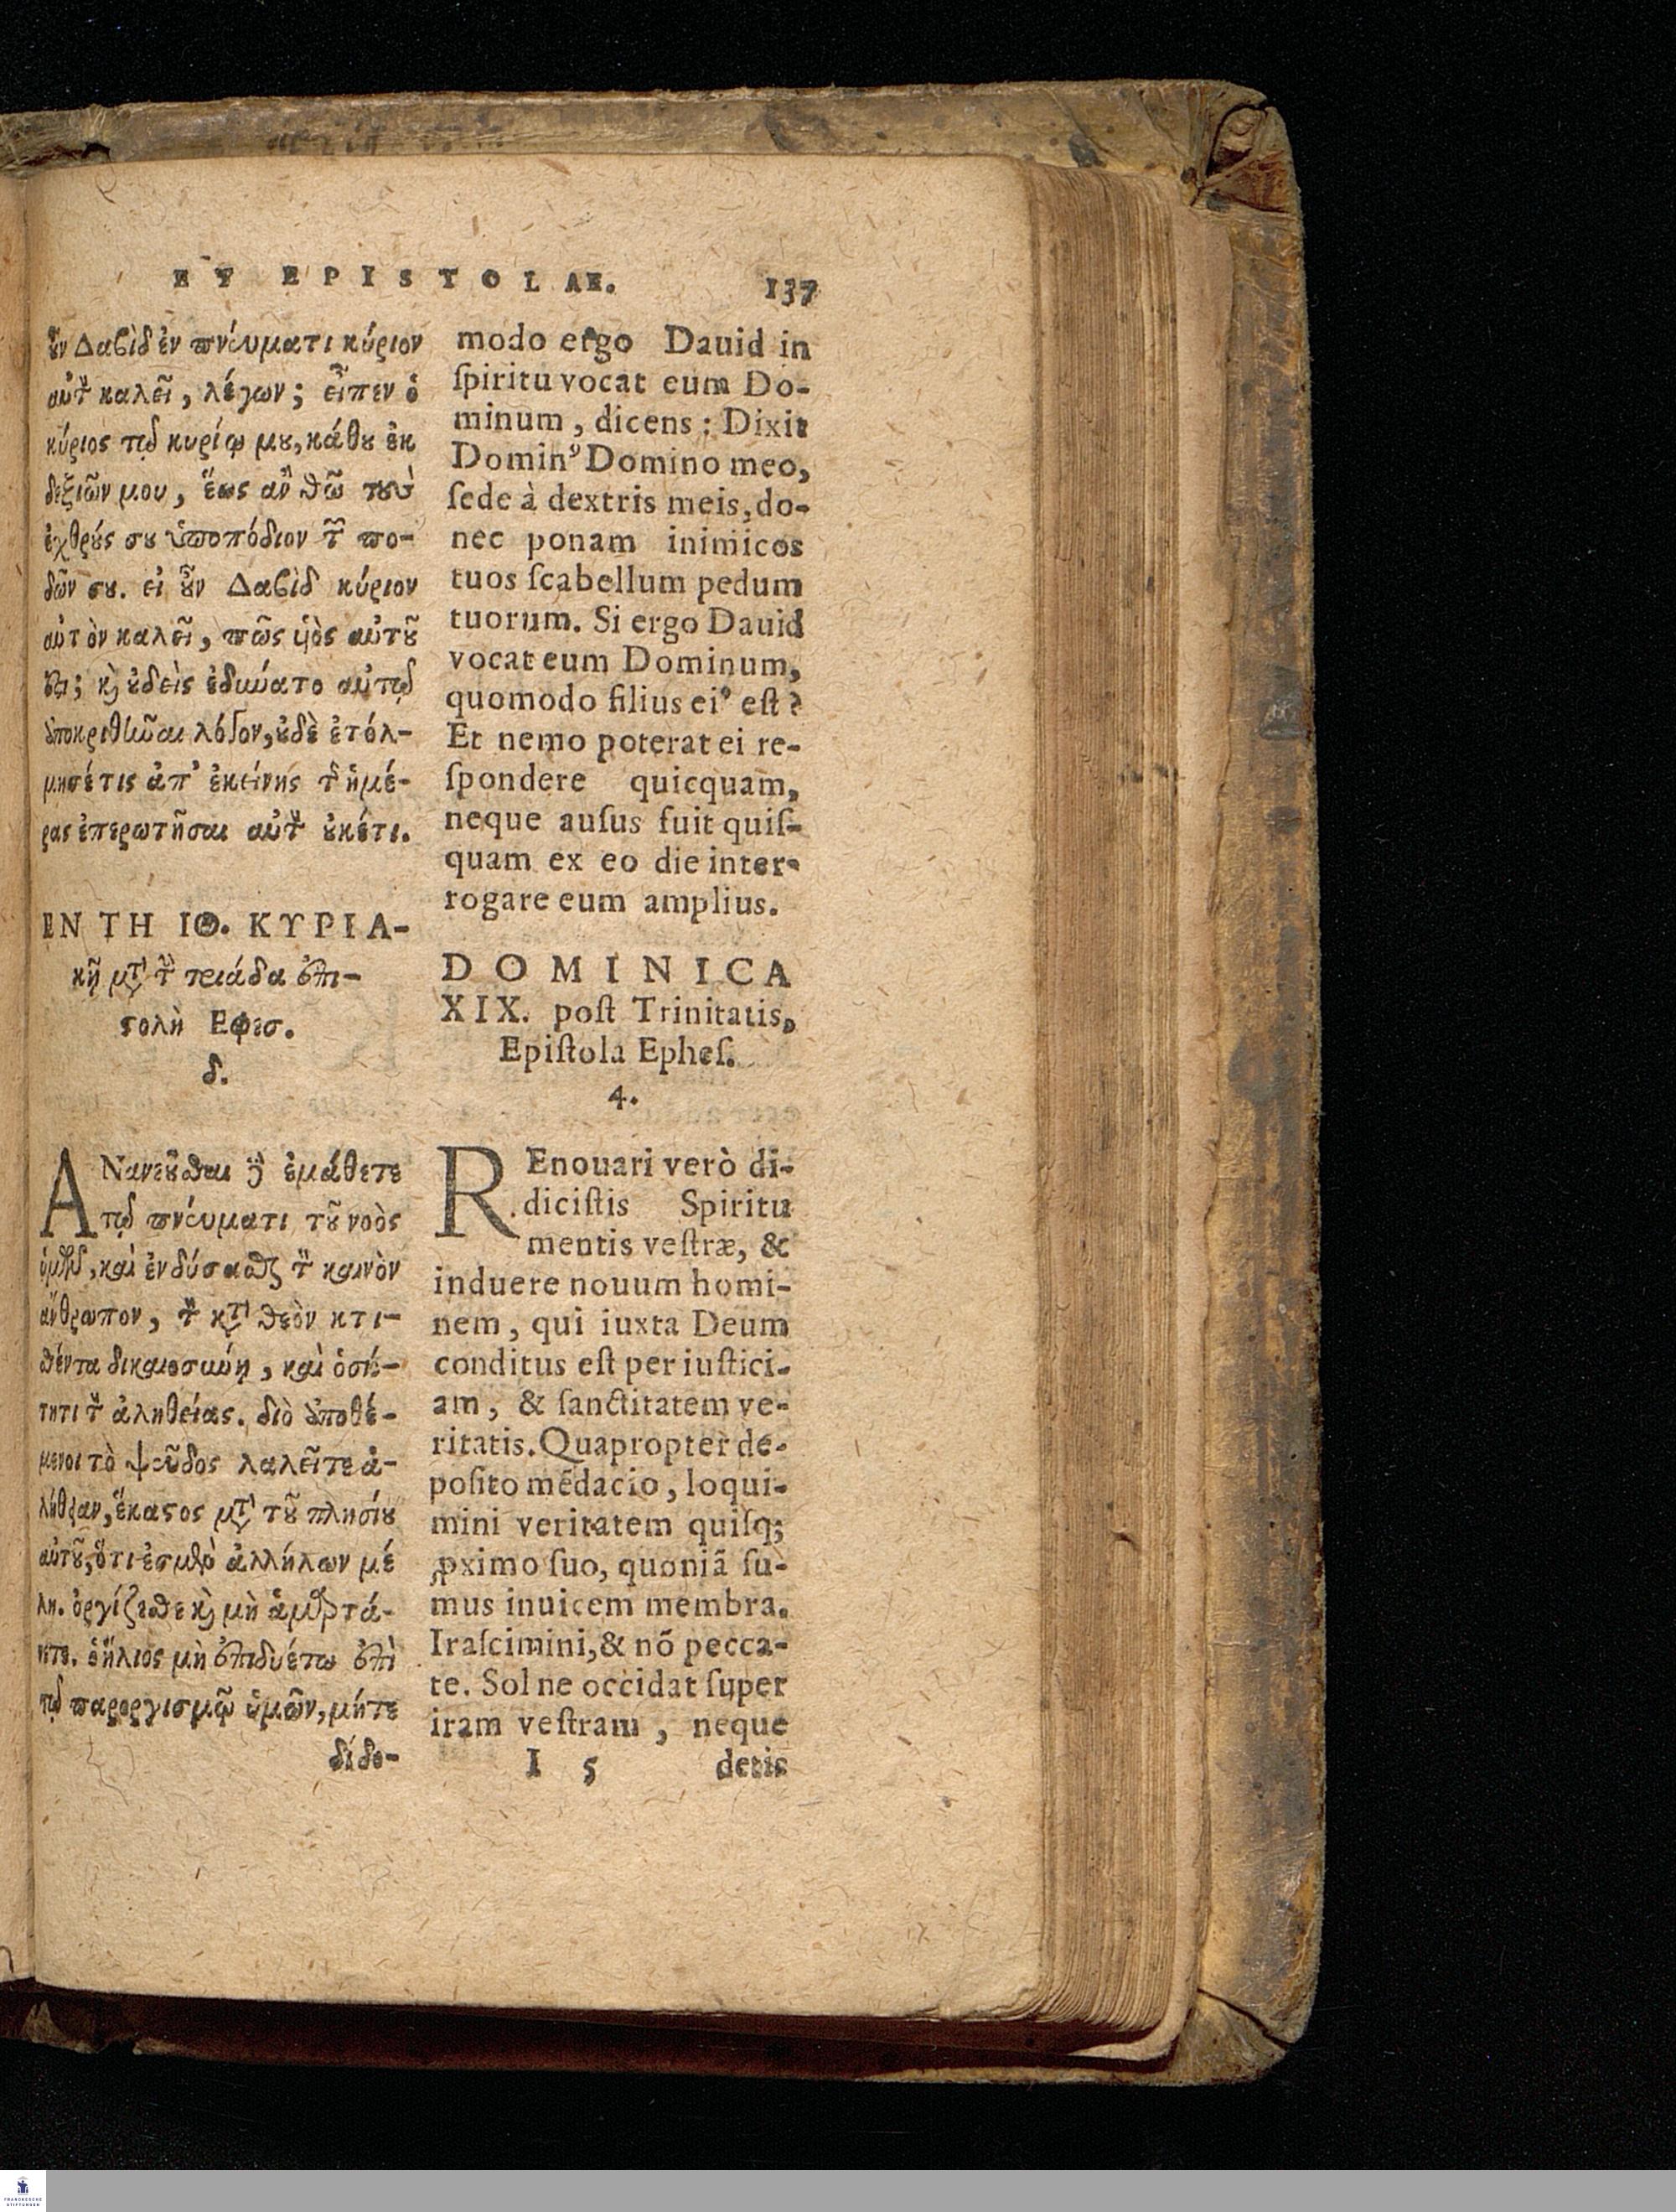 ET EPISTOLAE. 137
ȣ̓͂ν Δαβὶδ ἐν πνεύματι κύριον
αὐτὸν καλεῖ, λέγων; εἶπεν ὁ
κύριος τῷ κυρίῳ μȣ, κάθȣ ἐκ
δεξιῶν μου, ἕως ἂν θῶ τοὺς
ἐχθρȣ́ς σȣ ὑποπόδιον τῶν πο-
δῶν σȣ. εἰ ȣ̓͂ν Δαβὶδ κύριον
αὐτὸν καλεῖ, πῶς ὑιὸς αὐτȣ͂
ἐστι; καὶ ȣ̓δεὶς ἐδύνατο αὐτῷ
ἀποκριθῆναι λόγον, ȣ̓δὲ ἐτόλ-
μησέ τις ἀπ' ἐκείνης τῆς ἡμέ-
ρας ἐπερωτῆσαι αὐτὸν ȣ̓κέτι.
ΕΝ ΤΗ ΙΘ. ΚΥΡΙΑ-
κῇ μετὰ τὴν τριάδα ἐπι-
στολὴ Εφεσ.
δ.
ΑΝανεȣ͂σθαι δὲ ἐμάθετε
τῷ πνεύματι τȣ͂ νοὸς
ὑμῶν, καὶ ἐνδύσασθαι τὸν καινὸν
ἄνθρωπον, τὸν κατὰ θεὸν κτι-
σθέντα δικαιοσύνῃ, καὶ ὁσιό-
τητι τῆς ἀληθείας. διὸ ἀποθέ-
μενοι τὸ ψεῦδος λαλεῖτε ἀ-
λήθειαν, ἕκαστος μετὰ τȣ͂ πλησίȣ
αὐτȣ͂, ὅτι ἐσμὲν ἀλλήλων μέ
λη. ὀργίζεσθε καὶ μὴ ἁμαρτά-
νετε. ὁ ἥλιος μὴ ἐπιδυέτω ἐπὶ
τῷ παροργισμῷ ὑμῶν, μήτε
δίδο-
modo ergo Dauid in
ſpiritu vocat eum Do-
minum, dicens: Dixit
Dominꝰ Domino meo,
ſede à dextris meis, do-
nec ponam inimicos
tuos ſcabellum pedum
tuorum. Si ergo Dauid
vocat eum Dominum,
quomodo filius eiꝰ eſt?
Et nemo poterat ei re-
ſpondere quicquam,
neque auſus fuit quiſ-
quam ex eo die inter-
rogare eum amplius.
DOMINICA
XIX. poſt Trinitatis,
Epiſtola Epheſ.
4.
REnouari verò di-
diciſtis Spiritu
mentis veſtræ, &
induere nouum homi-
nem, qui iuxta Deum
conditus eſt per iuſtici-
am, & ſanctitatem ve-
ritatis. Quapropter de-
poſito mẽdacio, loqui-
mini veritatem quiſq;
ꝓximo ſuo, quoniã ſu-
mus inuicem membra.
Iraſcimini, & nõ pecca-
te. Sol ne occidat ſuper
iram veſtram, neque
I 5 detis
FRANCKESCHE
STIFTUNGEN